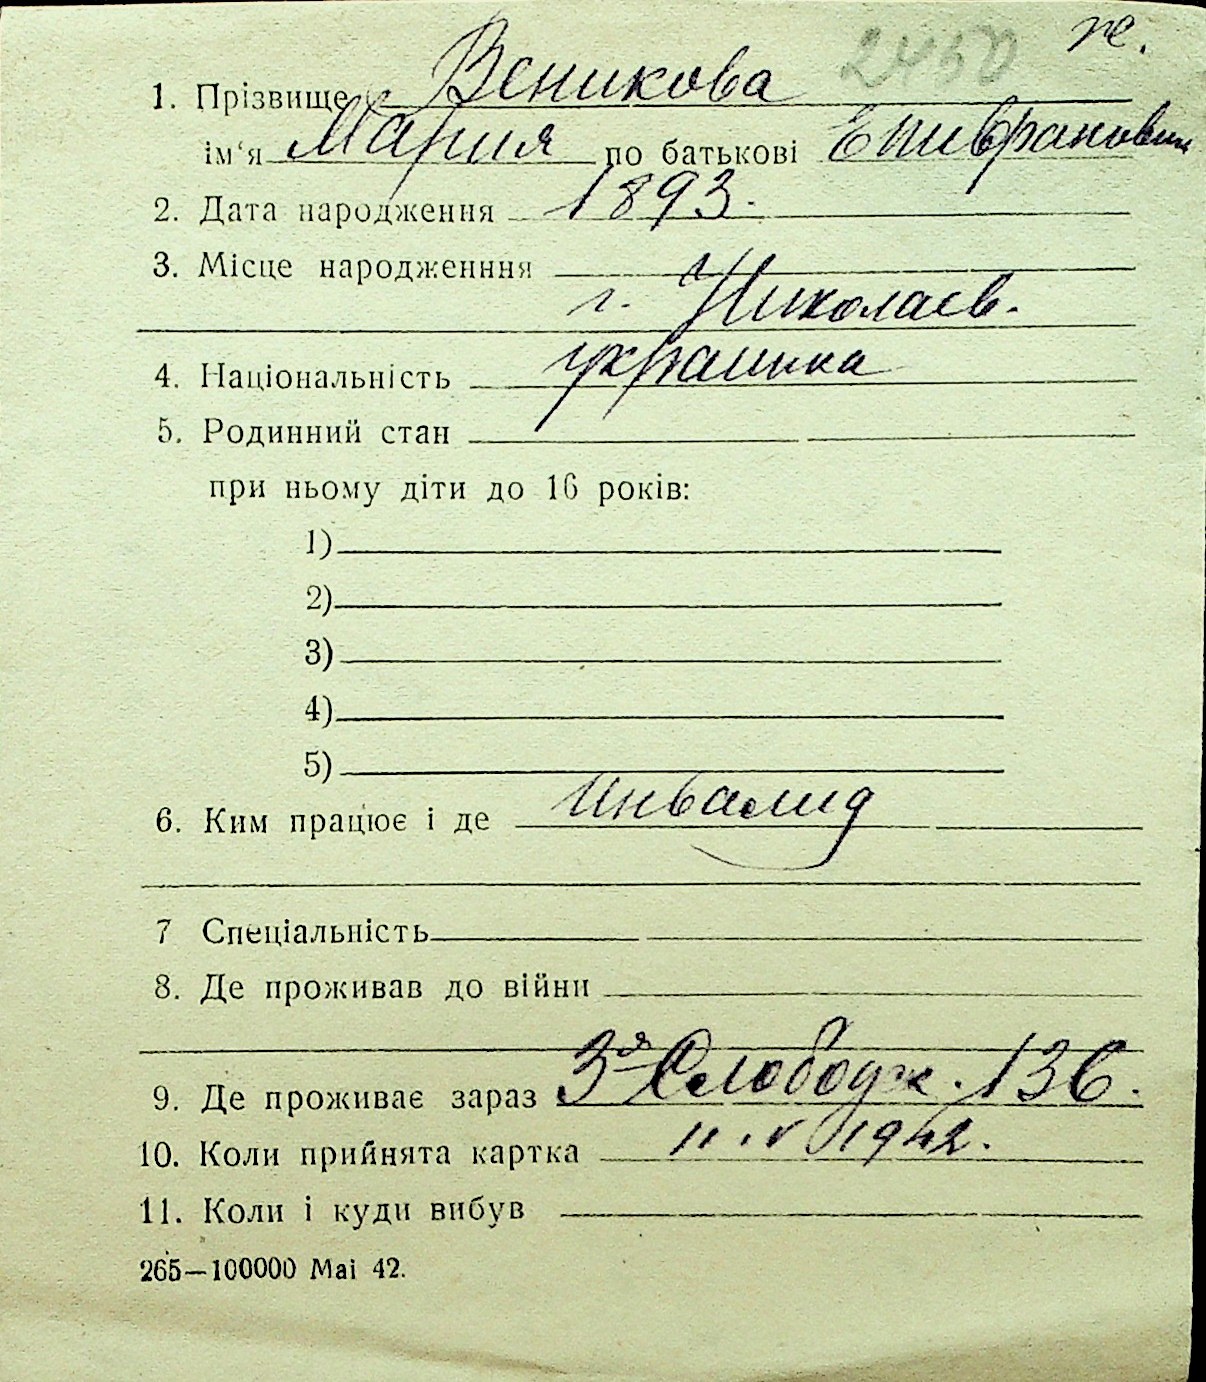 2450 ж.
1. Прізвище Веникова
ім‘я Мария по батькові
2. Дата народження 1893.
3. Місце народженння
г. Николаев.
4. Національність украинка
5. Родинний стан
при ньому діти до 16 років:
1)
2)
3)
4)
5)
6. Ким працює і де Инвалид
7 Спеціальність
8. Де проживав до війни
9. Де проживає зараз 3я Слободж. 136.
10. Коли прийнята картка 11.V 1942.
11. Коли і куди вибув
265—100000 Маі 42.